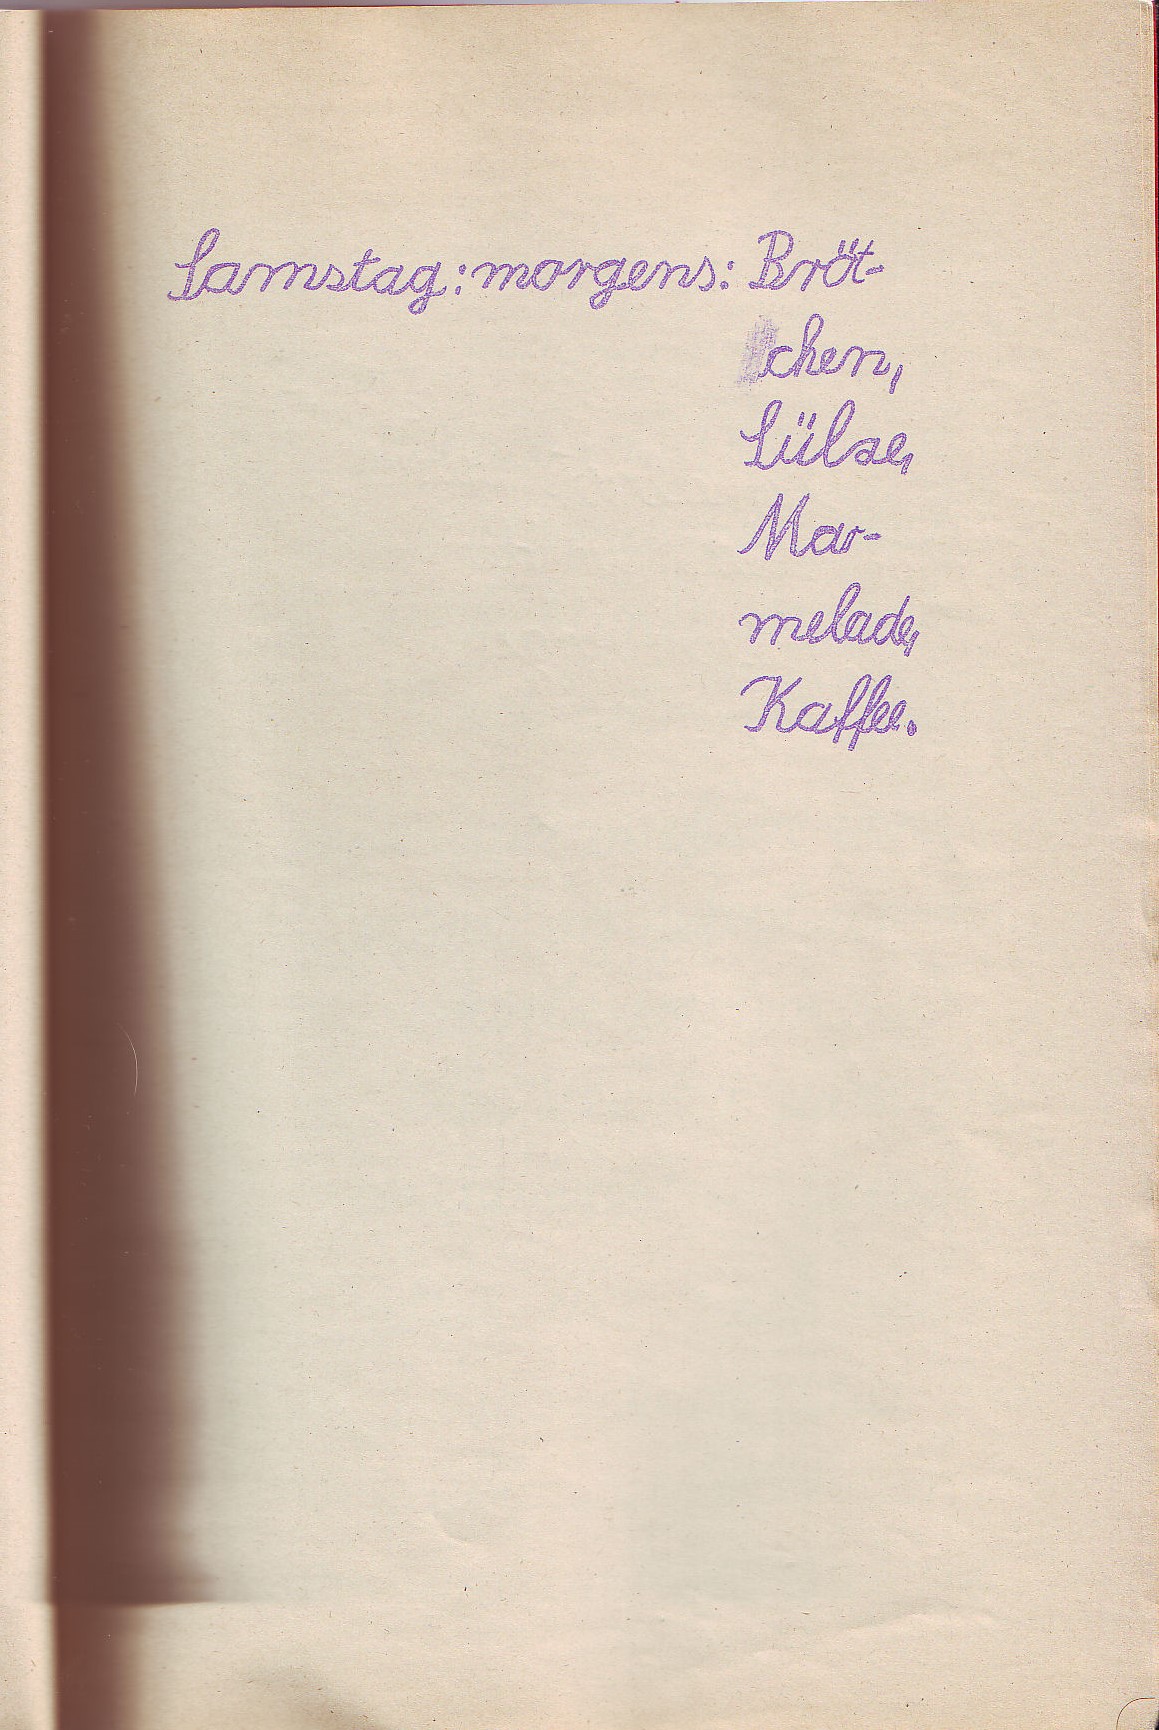 Samstag: morgens: Bröt-
chen,
Sülze,
Mar-
melade,
Kaffee.